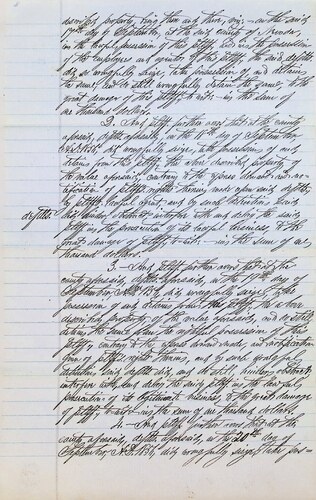 described property, being then and there, viz: - on the said
17th day of September, at the said county of
in the lawful possession of this pltff. and in the possession
of the employees and agents of this pltff, the said deftts.
did so wrongfully seize, take possession of and detain
the same, and do still wrongfully detain the same, to the
great damage of this pltff, to wit: - in the sum of
one thousand dollars.
2. - And pltff. further avers that at the county
aforesaid, defts. aforesaid, on the 18th day of September
A.D. 18 , did wrongfully seize, take possession of and
detain from this pltff. the above described property, of
the value aforesaid, contrary to the express demand and
of pltffs rights therein, made upon said deftts,
by pltffs lawful agent and by such detention said
deftts. hinder, obstruct interfere with and delay the said
pltff. in the prosecution of its lawful business to the
great damage of pltff, to wit: - in the sum of one
thousand dollars.
3. - And pltff further avers that at the
county aforesaid, deftts aforesaid, at the day of
September, A.D. 18 did wrongfully seize, take
possession of and detain from this pltff. the above
described property, of the value aforesaid, and do still
detain the same from the rightful possession of this
pltff, contrary to the express demand made, and
given of pltffs rights therein, and by such wrongful
detention said deftts. did, and do still, hinder, obstruct,
interfere with, and delay the said pltff in the lawful
prosecution of its legitimate business, to the great damage
of pltff, to wit: - in the sum of one thousand dollars.
4. - And pltff further avers that at the
county aforesaid, deftts aforesaid, at the 20th day of
September, A.D. 18 , did wrongfully seize, take pos-